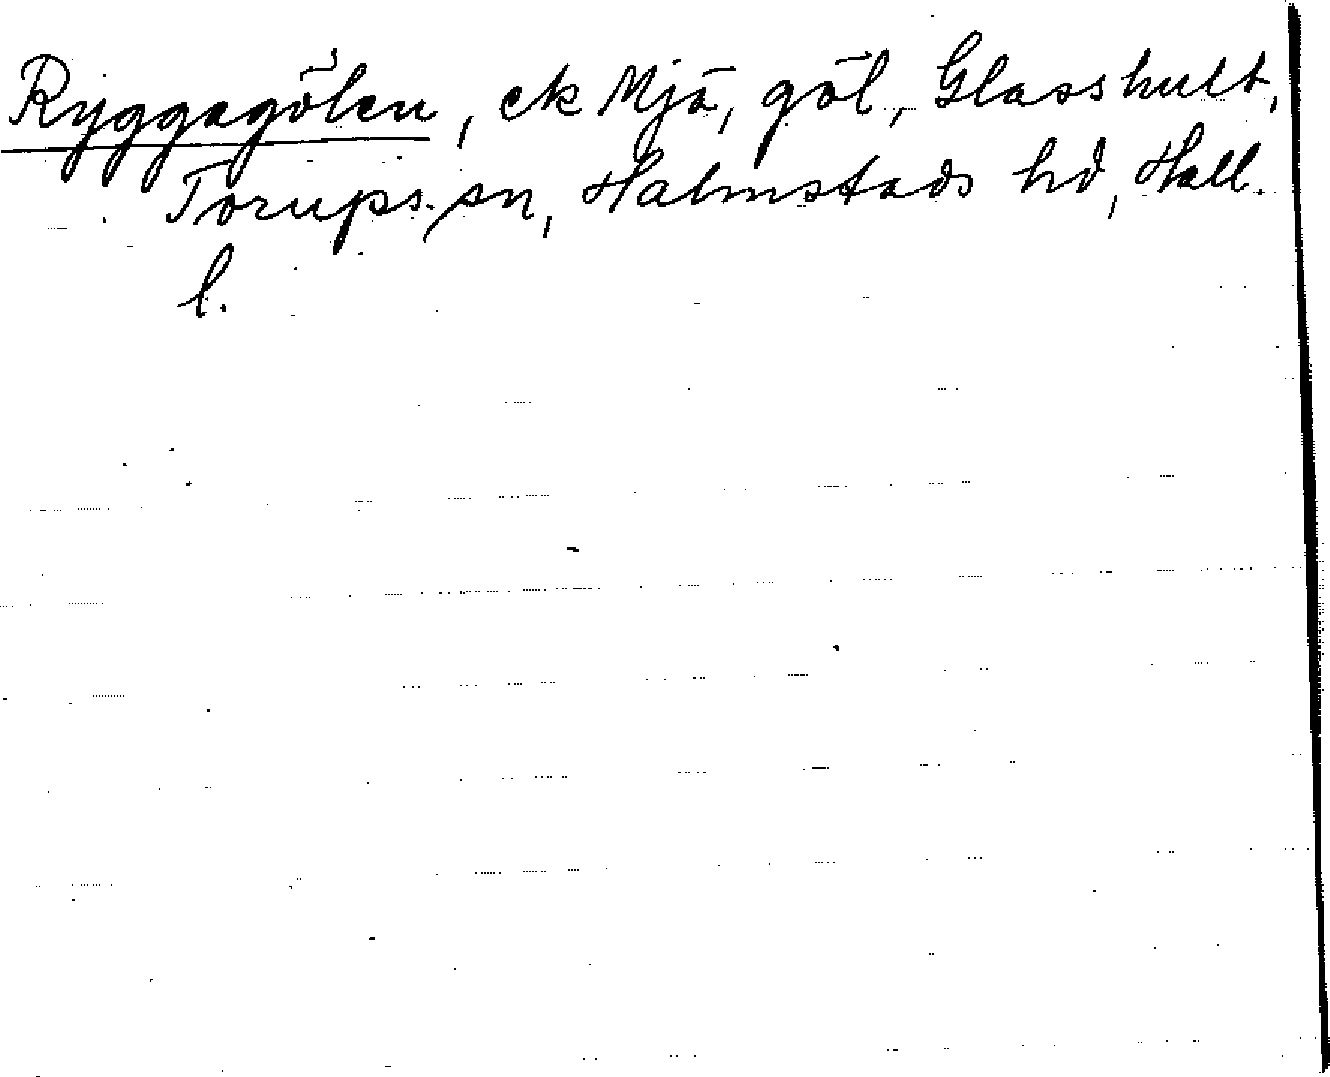 Ryggagölen, ek Mjö, göl, Glasshult,
Torups sn, Halmstads hd, Hall.
l.